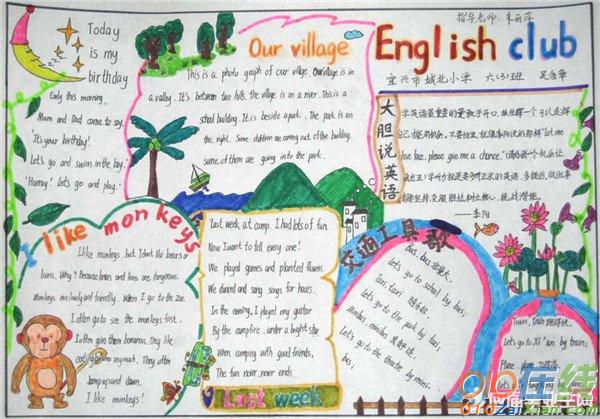 Today
is my
birthday
Early this morning,
Mum and Dad come to say
"It's your birthday!
Let's go and swim in the bay.
"Hurray! Let's go and play."
Our village
This is a photo graph of our village. Our village is in
a valley. It's between two hills. the village is on a river. This is a
school building. It is beside a park. The park is on
the right. Some children are coming out of the building.
some of them are going into the park.
English club
指导老师
宜兴市城北小学 六(3)班
大胆说英语
学英语最重要的是敢于开口,
就很李阳说的那样"let me
lose face, please give me a chance."
——李阳
I like monkeys
I like monkeys, but I don't like bears or
lions. Why? Because bears and lions are dangerous.
Monkeys are lovely and friendly. When I go to the Zoo.
I often go to see the monkeys first.
I often give them bananas. They like
eating bananas very much. They often
jump up and down.
I like monkeys!
Last week at camp. I had lots of fun.
Now I want to tell every one!
We played games and planted flowers.
We danced and sang songs for hours.
In the evening, I played my guitar
By the campfire, under a bright star
When camping with good friends,
The fun never, never ends.
Last week
交通工具歌
Bus, bus
Let's go to school by bus;
Taxi, taxi
Let's go to the park by taxi;
Minibus, minibus
Let's go to the theatre by mini-
bus;
Train, train
Let's go to Xi'an by train;
Plane, plane